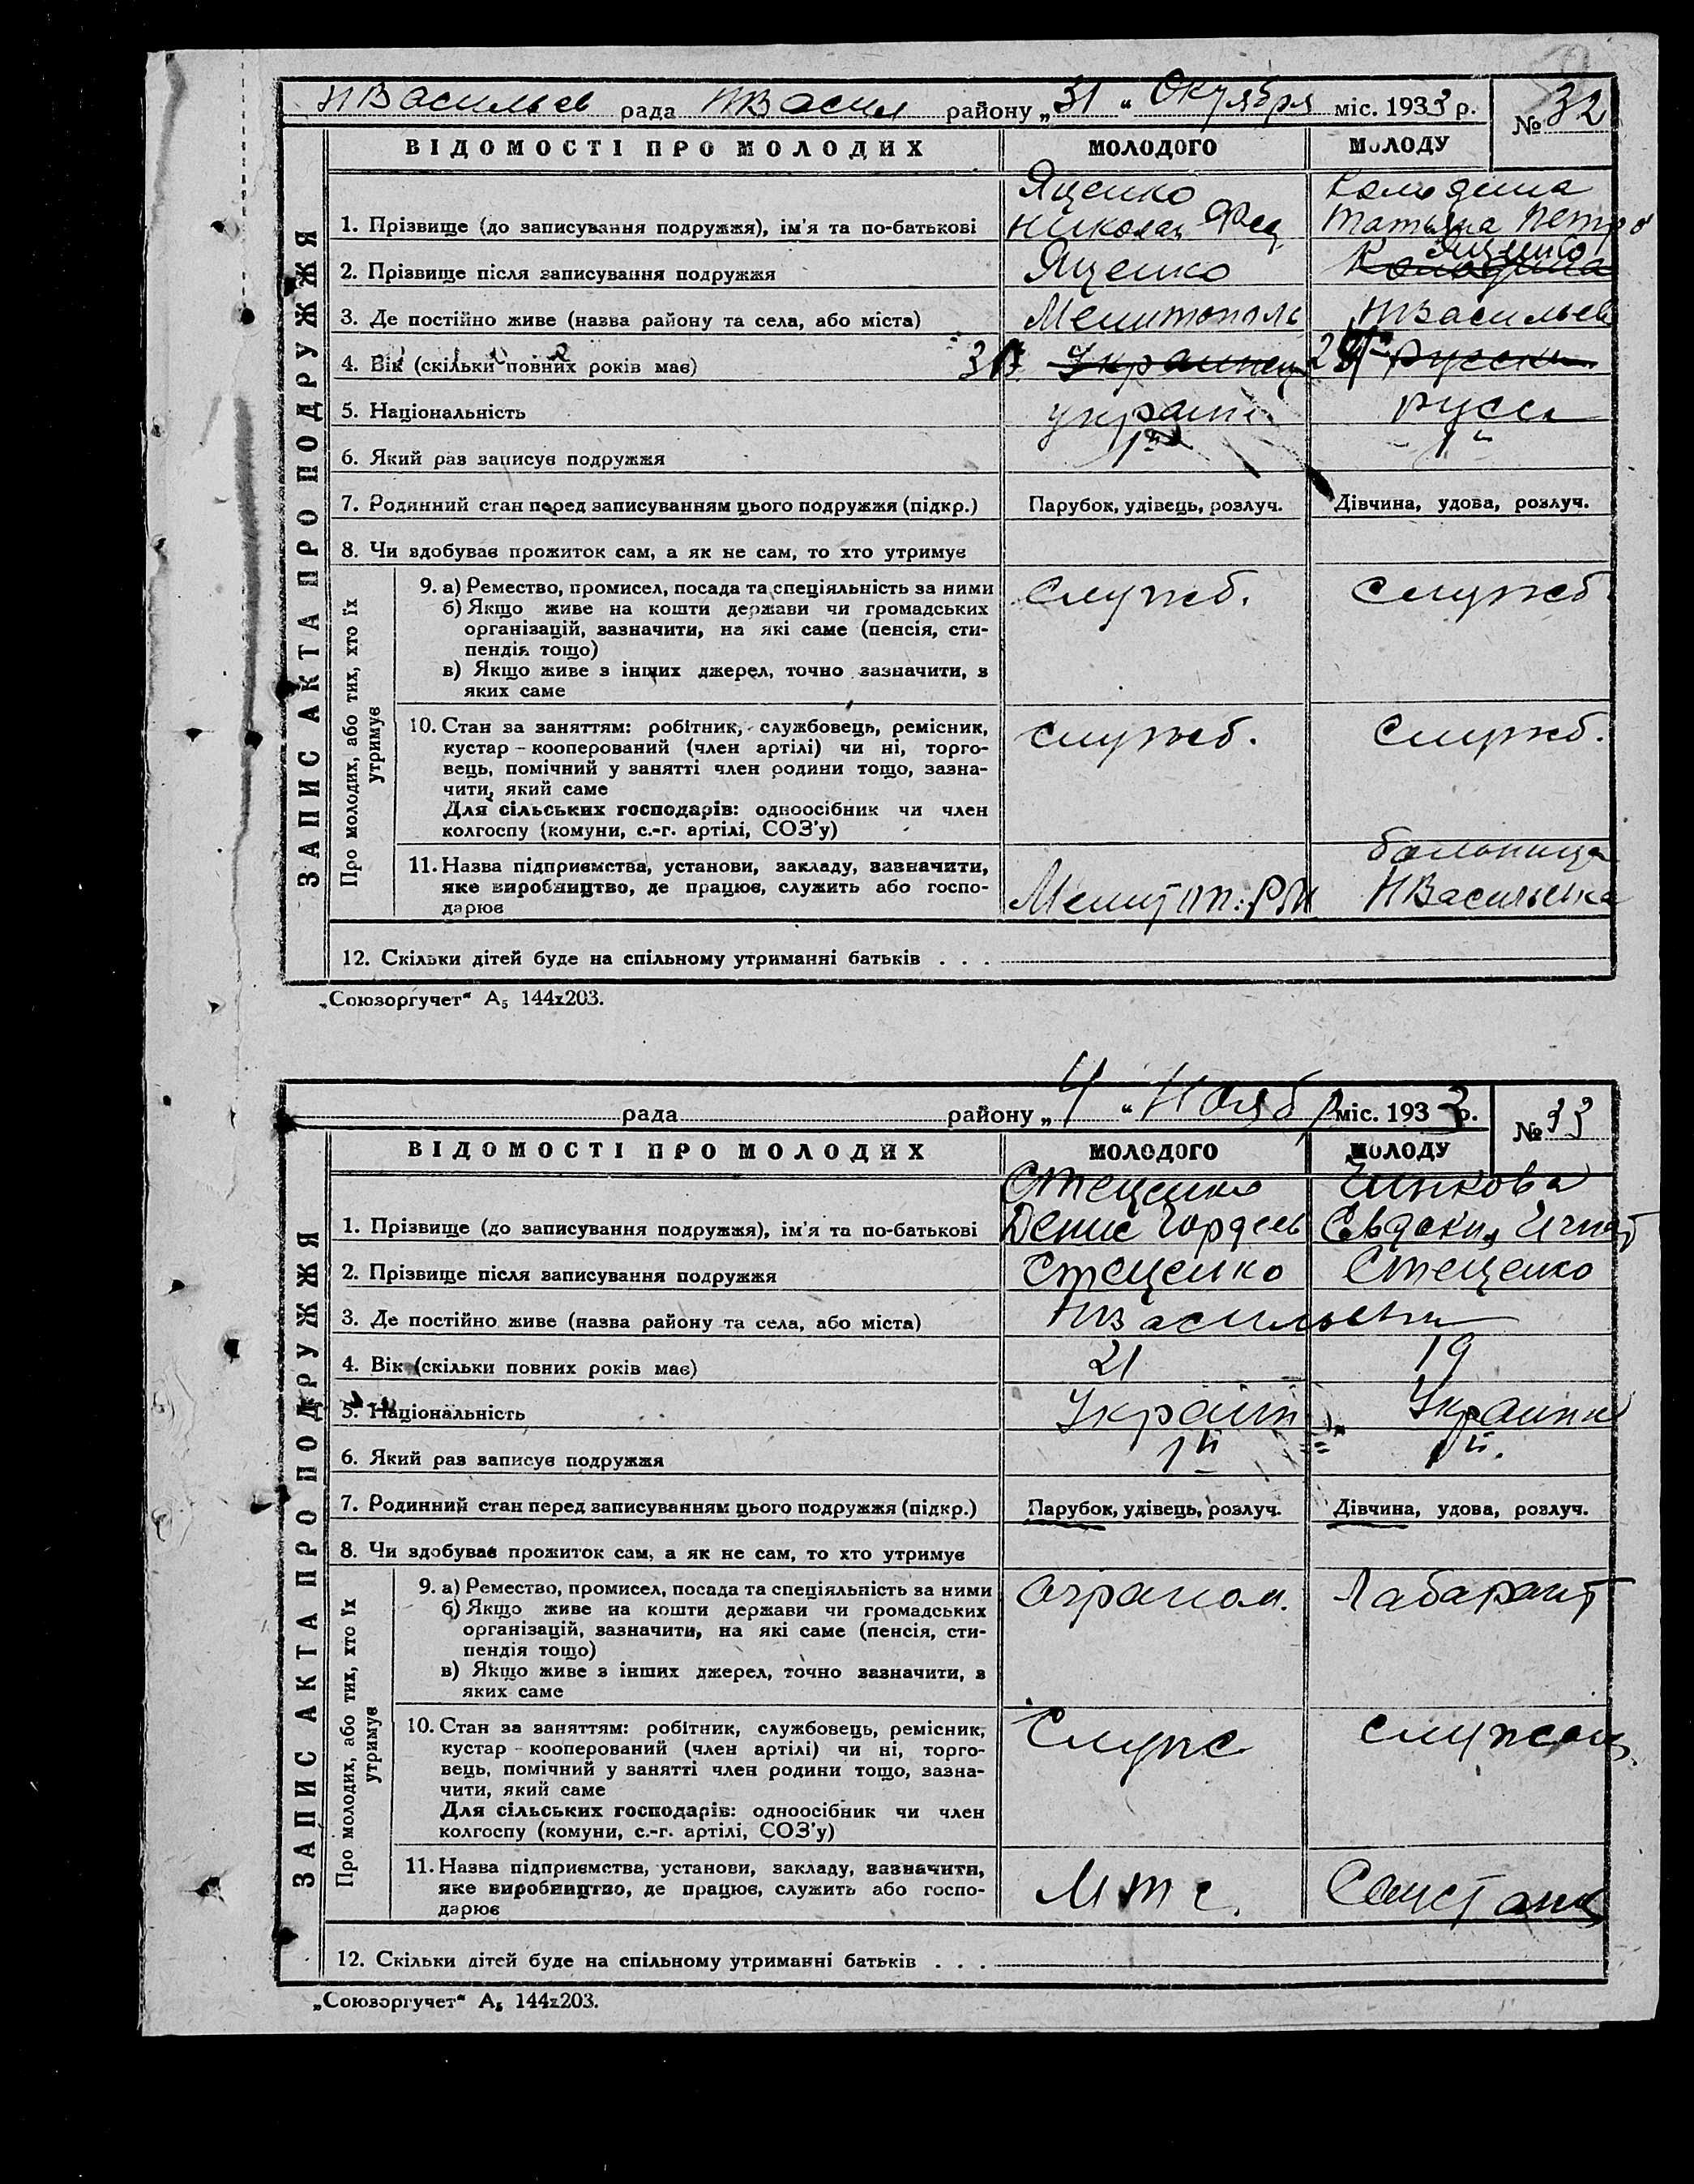 НВасильев рада НВасил району „31“ Октября міс. 1933 р. № 32
ВІДОМОСТІ ПРО МОЛОДИХ МОЛОДОГО МОЛОДУ
ЗАПИС АКТА ПРО ПОДРУЖЖЯ
Яценко
1. Прізвище (до записування подружжя), ім'я та по-батькові Николай Фед Татьяна Петро
Яценко
2. Прізвище після записування подружжя Яценко
3. Де постійно живе (назва району та села, або міста) Мелитополь НВасильев
4. Вік (скільки повних років має) Украинец Русск
5. Національність украин русск
6. Який раз записує подружжя 1й 1й
7. Родинний стан перед записуванням цього подружжя (підкр.) Парубок, удівець, розлуч. Дівчина, удова, розлуч.
8. Чи здобуває прожиток сам, а як не сам, то хто утримує
Про молодих, або тих, хто їх
утримує
9. а) Ремество, промисел, посада та спеціяльність за ними Служб. Служб.
б) Якщо живе на кошти держави чи громадських
організацій, зазначити, на які саме (пенсія, сти-
пендія тощо)
в) Якщо живе з інших джерел, точно зазначити, з
яких саме
10. Стан за заняттям: робітник, службовець, ремісник, служб. Служб.
кустар - кооперований (член артілі) чи ні, торго-
вець, помічний у занятті член родини тощо, зазна-
чити, який саме
Для сільських господарів: одноосібник чи член
колгоспу (комуни, с.-г. артілі, СОЗ'у)
больница
11. Назва підприємства, установи, закладу, зазначити,
яке виробництво, де працює, служить або госпо- НВасильевка
дарює
12. Скільки дітей буде на спільному утриманні батьків . . .
„Союзоргучет“ А₅ 144х203.
рада району „4“ Ноябр міс. 1933 р. № 33
ВІДОМОСТІ ПРО МОЛОДИХ МОЛОДОГО МОЛОДУ
ЗАПИС АКТА ПРО ПОДРУЖЖЯ
Стеценко
1. Прізвище (до записування подружжя), ім'я та по-батькові Денис Гордеев Евдокия Игнат
2. Прізвище після записування подружжя Стеценко Стеценко
3. Де постійно живе (назва району та села, або міста)
4. Вік (скільки повних років має) 21 19
5. Національність Україн Украинк
6. Який раз записує подружжя 1й 1й.
7. Родинний стан перед записуванням цього подружжя (підкр.) Парубок, удівець, розлуч. Дівчина, удова, розлуч.
8. Чи здобуває прожиток сам, а як не сам, то хто утримує
Про молодих, або тих, хто їх
утримує
9. а) Ремество, промисел, посада та спеціяльність за ними Аграном. Лаборант
б) Якщо живе на кошти держави чи громадських
організацій, зазначити, на які саме (пенсія, сти-
пендія тощо)
в) Якщо живе з інших джерел, точно зазначити, з
яких саме
10. Стан за заняттям: робітник, службовець, ремісник, Служ служащ.
кустар - кооперований (член артілі) чи ні, торго-
вець, помічний у занятті член родини тощо, зазна-
чити, який саме
Для сільських господарів: одноосібник чи член
колгоспу (комуни, с.-г. артілі, СОЗ'у)
11. Назва підприємства, установи, закладу, зазначити,
яке виробництво, де працює, служить або госпо- МТС.
дарює
12. Скільки дітей буде на спільному утриманні батьків . . .
„Союзоргучет“ А₅ 144х203.